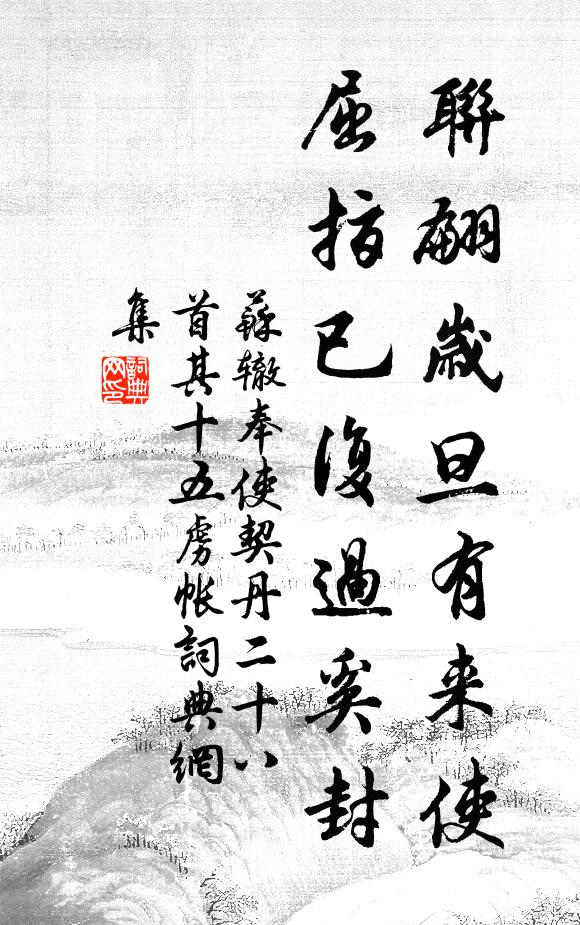 聯翩歲旦有来使
屈指已復過奚封
蘇辙奉使契丹二十八
首其十五虜帐詞典網
集
詞典
网印